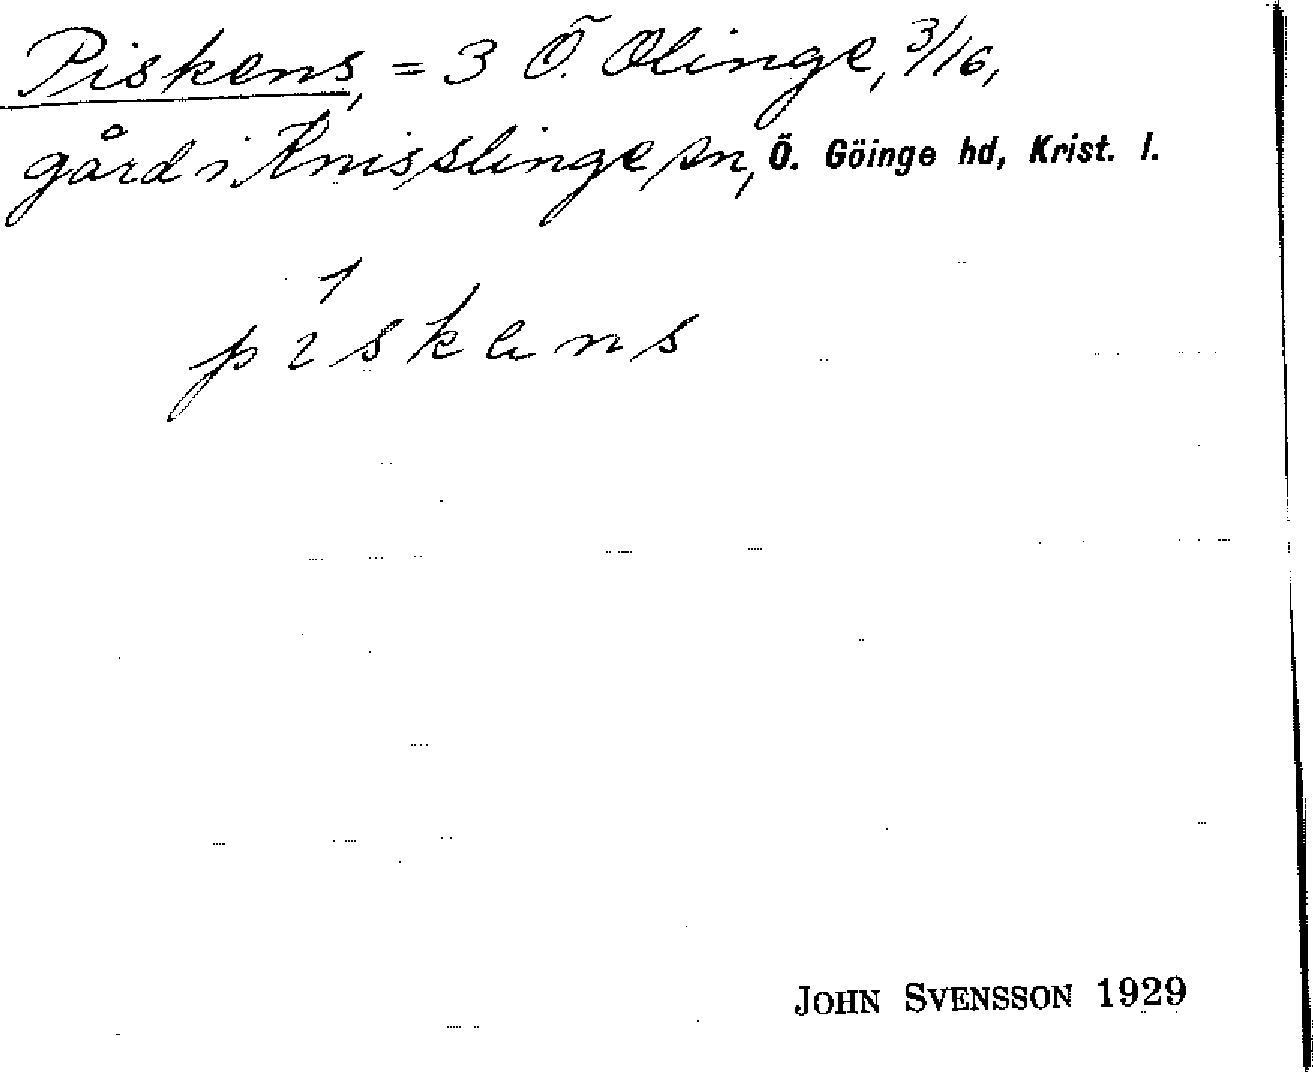 Piskens, = 3 Ö. Olinge, 3/16,
gård i Knisslinge sn, Ö. Göinge hd, Krist. l.
piskens
JOHN SVENSSON 1929